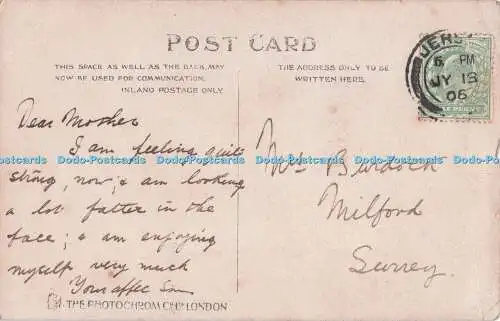 POST CARD
THIS SPACE AS WELL AS THE BACK, MAY
NOW BE USED FOR COMMUNICATION.
INLAND POSTAGE ONLY
THE ADDRESS ONLY TO BE
WRITTEN HERE.
JERSEY
6 PM
JY 18
06
Dear Mother
I am feeling quite
strong, now, & am looking
a lot fatter in the
face; & am enjoying
myself very much
Your affec Son
Mrs Burdock
Milford
Surrey.
THE PHOTOCHROM Co Ltd LONDON
Dodo-Postcards Dodo-Postcards Dodo-Postcards Dodo-Postcards Dodo-Postcards